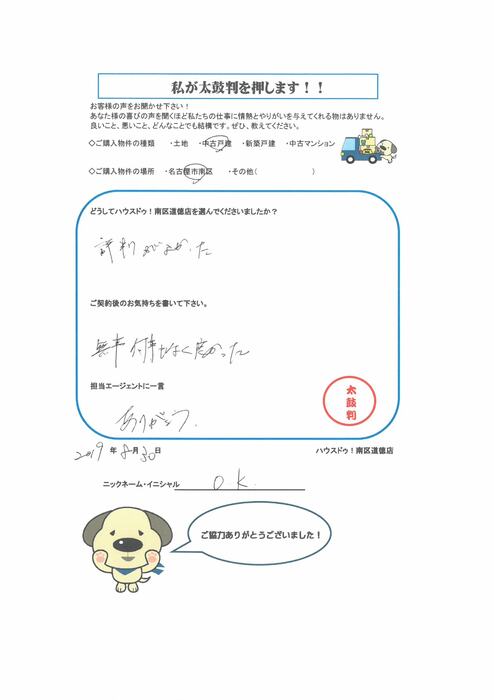 私が太鼓判を押します！！
お客様の声をお聞かせ下さい！
あなた様の喜びの声を聞くほど私たちの仕事に情熱とやりがいを与えてくれる物はありません。
良いこと、悪いこと、どんなことでも結構です。ぜひ、教えてください。
◇ご購入物件の種類　・土地　・中古戸建　・新築戸建　・中古マンション
◇ご購入物件の場所　・名古屋市南区　・その他(　　　　　)
どうしてハウスドゥ！南区道徳店を選んでくださいましたか？
評判がよかった
ご契約後のお気持ちを書いて下さい。
無事 何事もなく良かった
担当エージェントに一言
ありがとう.
太鼓判
2019 年 8 月 30 日
ハウスドゥ！南区道徳店
ニックネーム・イニシャル　O K.
ご協力ありがとうございました！